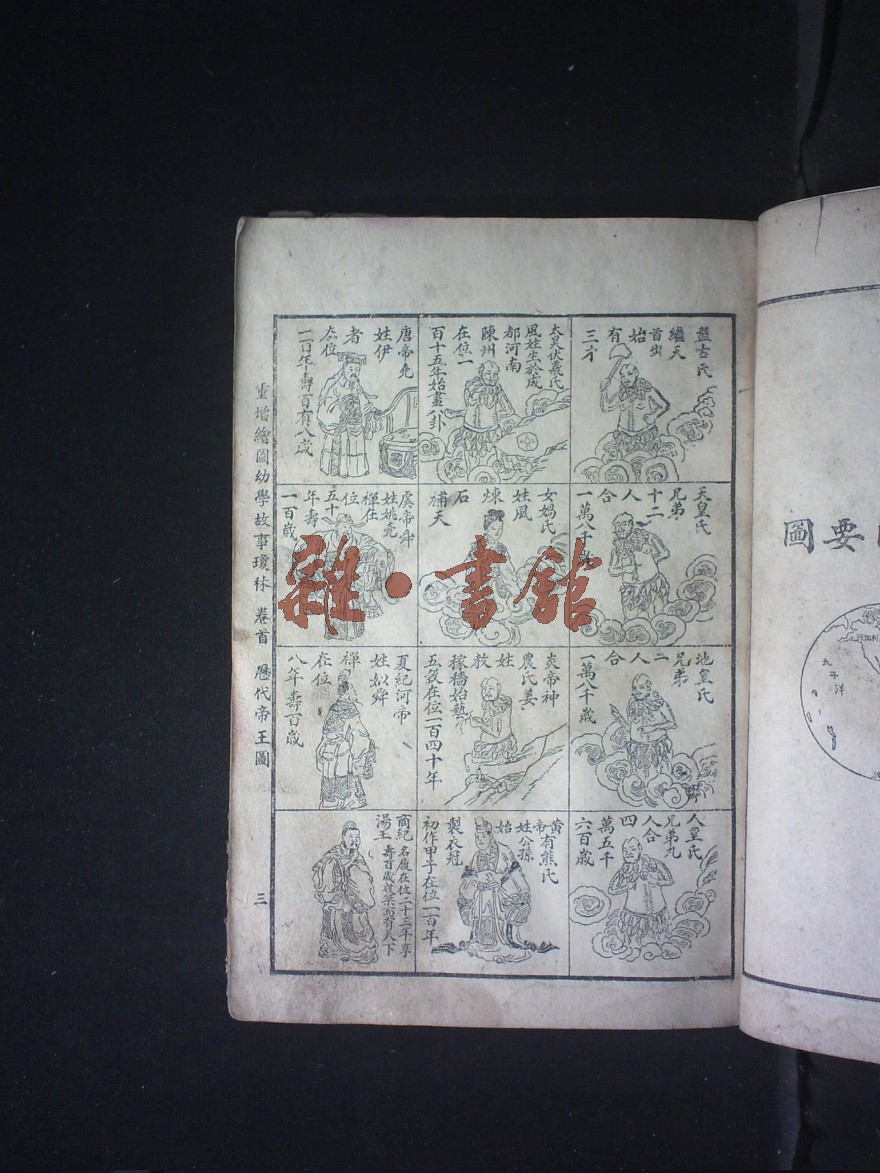 盤古氏
繼天
首出
始
有
三才
天皇氏
兄弟
十二
人
合
一萬八千歲
地皇氏
兄弟
二
人
合
一萬八千歲
人皇氏
兄弟九
人合
四
萬五千
六百歲
太昊伏羲氏
風姓生於成
都河南
陳州
在位一
百十五年始畫八卦
女媧氏
姓風
煉
石
補天
炎帝神
農氏姜
姓
教
稼穡始藝
五穀在位一百四十年
黃有熊氏
帝
姓公孫
始
製衣冠
初作甲子在位一百年
唐帝堯
姓伊
者
在位
虞帝舜
姓姚堯
禪在
位
五十
年壽
一百歲
夏紀河帝
姓姒舜
禪
在位
八年壽百歲
商紀
湯王
名履在位二十三年享
壽百歲放桀而有天下
重增繪圖幼學故事瓊林 卷首 歷代帝王圖
三
要圖
太平洋
雜·書館